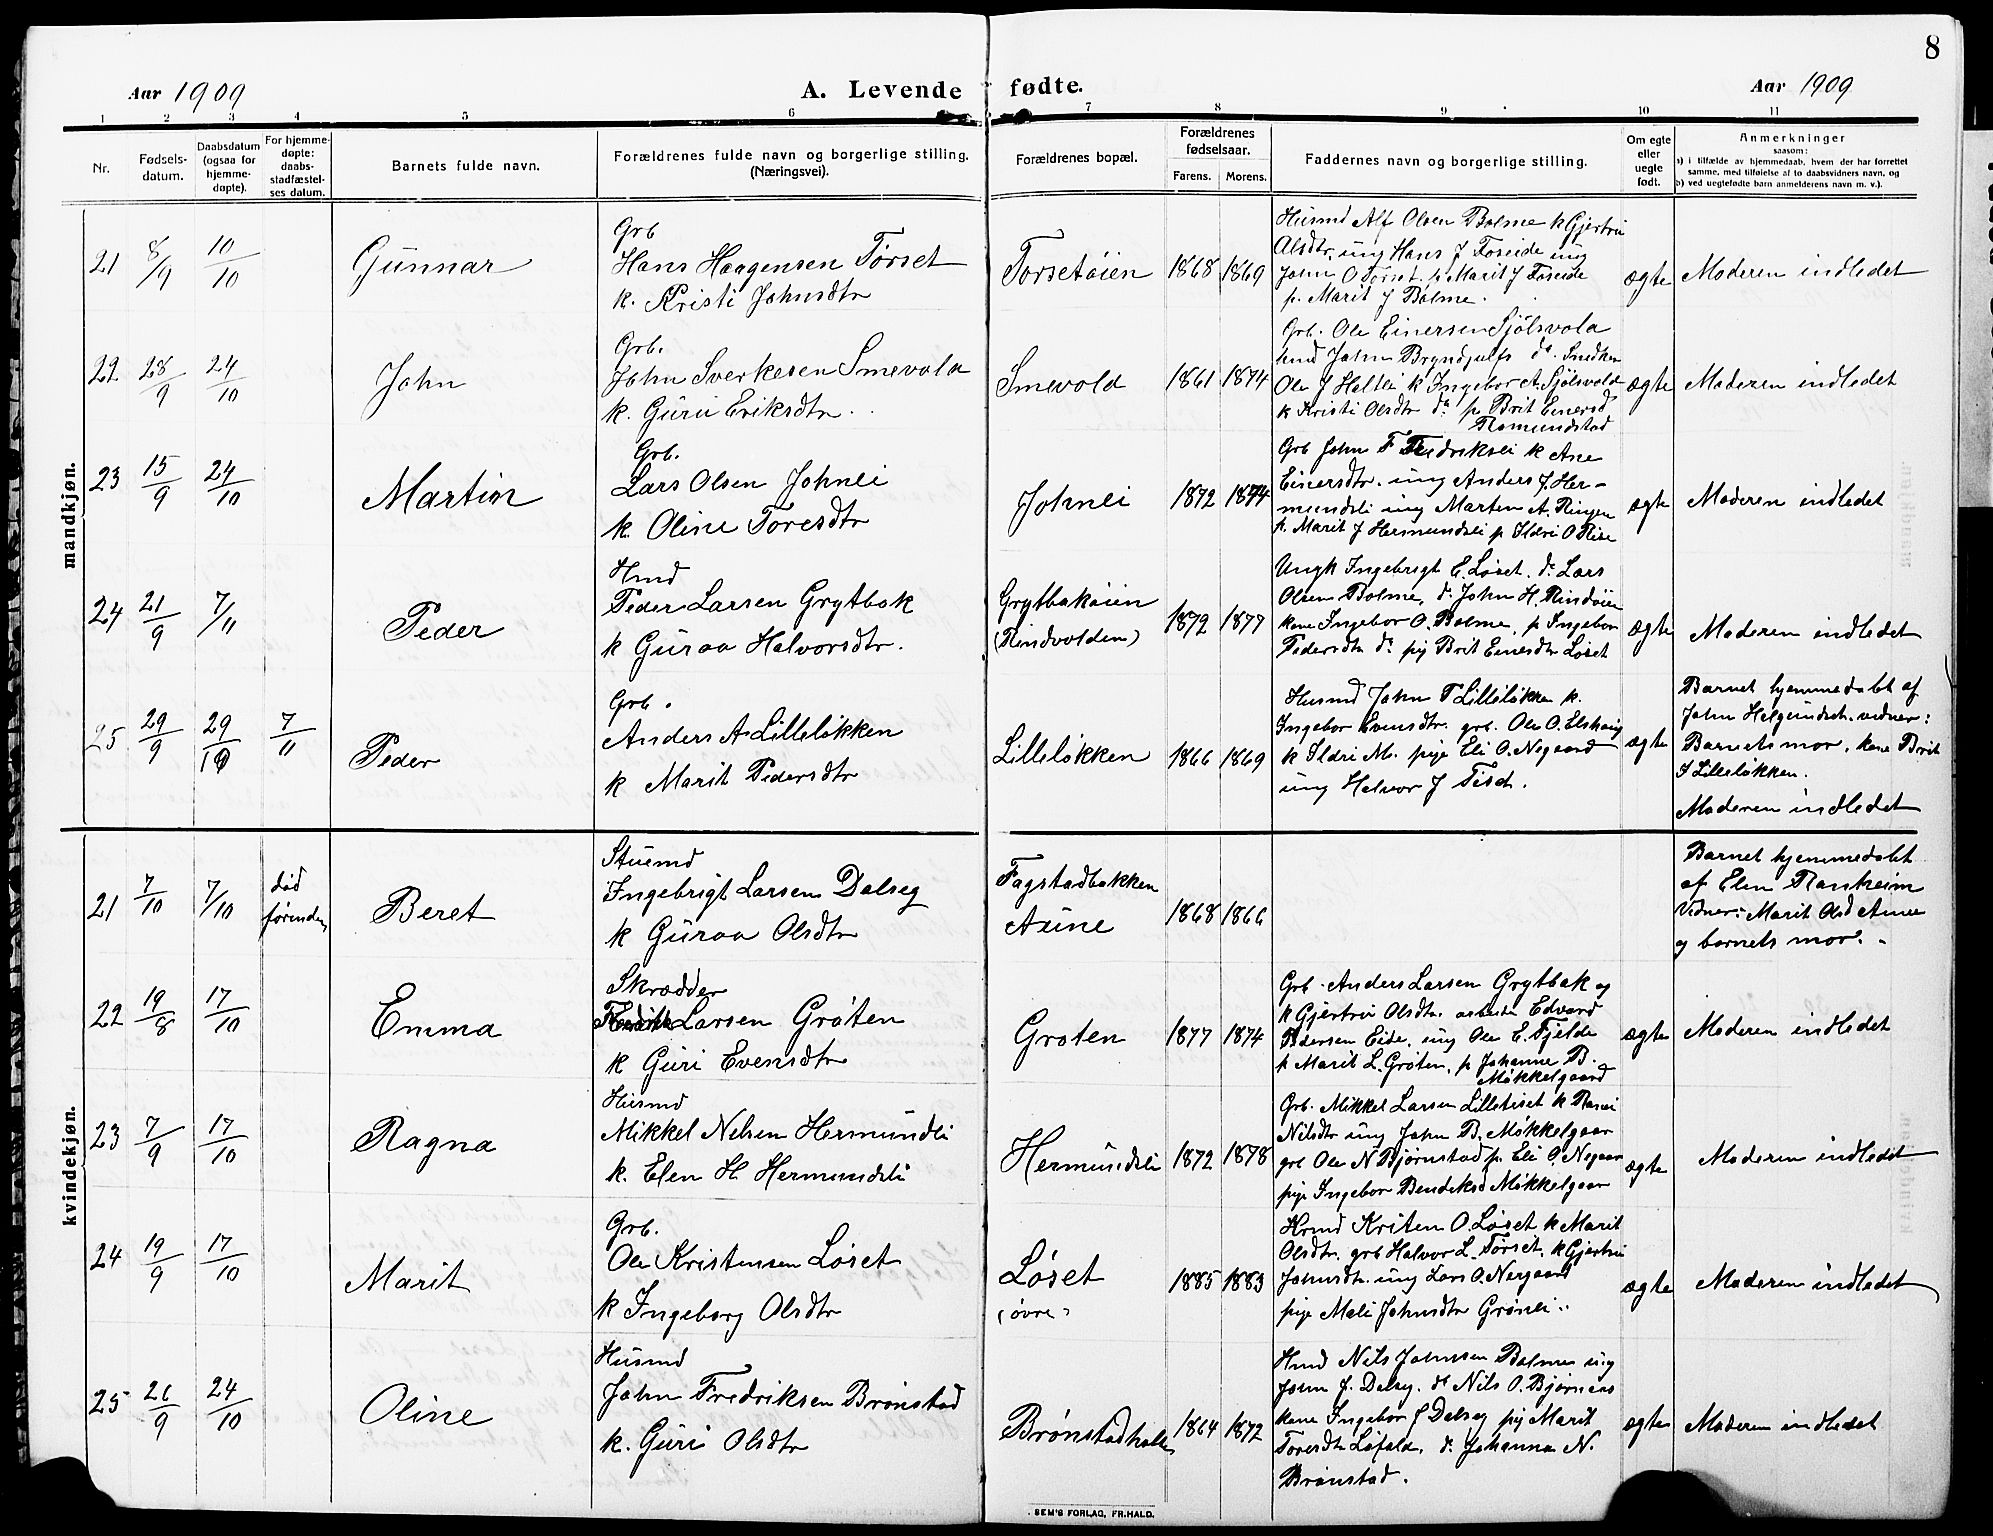 8
Aar 1909
A. Levende fødte.
Aar 1909
1 2 3 4 5 6 7 8 9 10 11
Nr.
Fødsels-
datum.
Daabsdatum
(ogsaa for
hjemme-
døpte).
For hjemme-
døpte:
daabs-
stadfæstel-
ses datum.
Barnets fulde navn.
Forældrenes fulde navn og borgerlige stilling.
(Næringsvei).
Forældrenes bopæl.
Forældrenes
fødselsaar.
Farens. Morens.
Faddernes navn og borgerlige stilling.
Om egte
eller
uegte
født.
Anmerkninger
saasom:
a) i tilfælde av hjemmedaab, hvem der har forrettet
samme, med tilføielse af to daabsvidners navn, og
b) ved uegtefødte barn anmelderens navn m. v.).
mandkjøn.
21 8/9 10/10
Gunnar
Grb
Hans Haagensen Tørset
k. Kristi Johnsdtr
Torsetøien
1868 1869
Husmd Alf Olsen Bolme k Gjertru
Olsdtr, ung Hans J Foseide ung
John O Tørset, p. Marit J Foseide
p. Marit J Bolme.
ægte
Moderen indledet
22 28/9 24/10
John
Grb.
John Sverkesen Smevold
k. Guru Eriksdtr.
Smevold
1861 1874
Grb. Ole Einersen Sjølsvola
hmd John Bryndjulfs ds. Snedker
Ole J Holtli k Ingebor A. Sjølsvold
k Kristi Olsdtr ds p Brit Einersd
Romundstad
ægte
Moderen indledet
23 15/9 24/10
Martin
Grb.
Lars Olsen Johnli
k. Oline Toresdtr
Johnli
1872 1874
Grb John F Fredriksli k Ane
Einersdtr. ung Anders J. Her-
mundsli ung Marten A. Ringen
p. Marit J Hermundsli p Ildri O Rise
ægte
Moderen indledet
24 21/9 7/11
Peder
Hmd
Peder Larsen Grytbak
k Guroa Halvorsdtr.
Grytbakøien
(Rindvolden)
1872 1877
Ungk Ingebrigt E. Løset. ds Lars
Olsen Bolme, ds John H. Rindøien
kone Ingebor O. Bolme, p Ingebor
Pedersdtr ds pij Brit Einesdtr Løset
ægte
Moderen indledet
25 29/9 29/10 7/11
Peder
Grb.
Anders A Lilleløkken
k Marit Pedersdtr
Lilleløkken
1866 1869
Husmd John T Lilleløkken k.
Ingebor Evensdtr. grb. Ole O. Elshaug
k Ildri M. pije Eli O. Negaard
ung Halvor J
ægte
Barnet hjemmedøbt af
John Helgundseth. vidner:
Barnets mor, kone Brit
I Lilleløkken.
Moderen indledet
kvindekjøn.
21 7/10 7/10
død
førinden
Beret
Stuemd
Ingebrigt Larsen Dalseg
k Guroa Olsdtr
Fagstadbakken
Aune
1868 1866
Barnet hjemmedøbt
af Elen Ranheim
Vidner: Marit Olsd Aune
og barnets mor.
22 19/8 17/10
Emma
Skrædder
Larsen Grøten
k Guri Evensdtr
Grøten
1877 1874
Grb. Anders Larsen Grytbak og
k Gjertru Olsdtr. arbeider Edvard
Pedersen Eide, ung Ole E. Fjelde
p Marit L. Grøten, p Johanne B.
Møkkelgaard
ægte
Moderen indledet
23 7/9 17/10
Ragna
Husmd
Mikkel Nilsen Hermundli
k. Elen H. Hermundsli
Hermundsli
1872 1878
Grb. Mikkel Larsen Lilletiset k Ranei
Nilsdtr ung John B. Møkkelgaar
grb Ole N Bjørnstad p. Eli O. Negaar
pije Ingebor Bendiksd Møkkelgaar
ægte
Moderen indledet
24 19/9 17/10
Marit
Grb.
Ole Kristensen Løset
k Ingeborg Olsdtr
Løset
(øvre)
1885 1883
Hmd Kristen O. Løset k Marit
Olsdtr. grb Halvor L. Tørset. k Gjertru
Johnsdtr. ung Lars O. Nergaard
pije Mali Johnsdtr Grønli.
ægte
Moderen indledet
25 26/9 24/10
Oline
Husmd
John Fredriksen Brønstad
k. Guri Olsdtr
Brønstadhalle
1864 1872
Hmd Nils Johnsen Bolme ung
John J. Dalseg. ds Nils O. Bjørnaas
kone Ingebor J Dalseg pij Marit
Toresdtr Løfald, ds Johanna N.
Brønstad.
ægte
Moderen indledet
SEM'S FORLAG, FR.HALD.